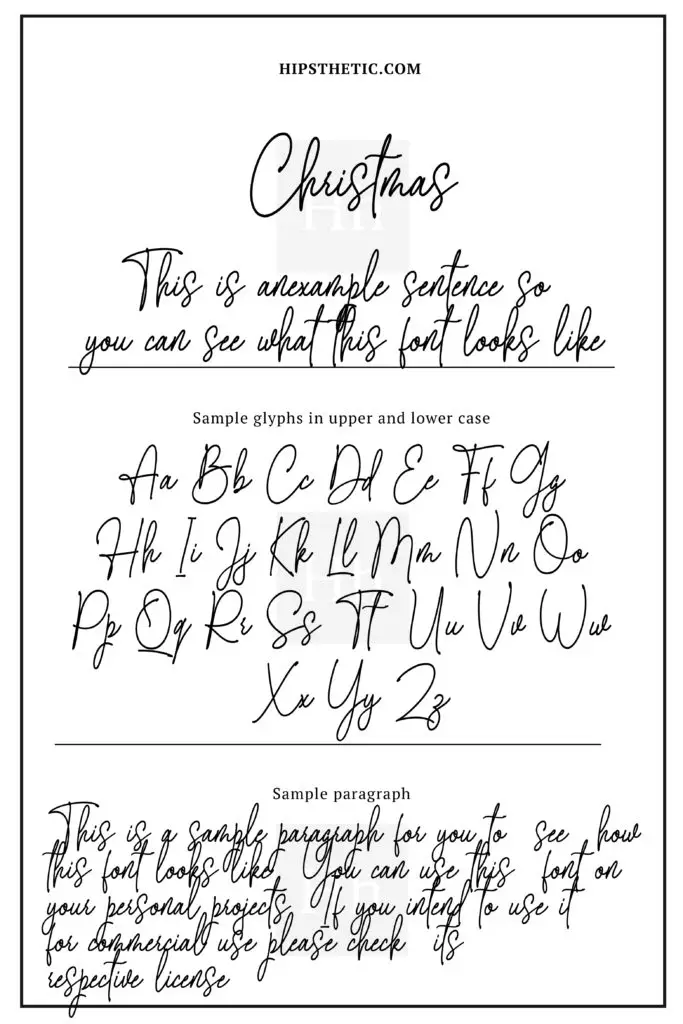 HIPSTHETIC.COM
Christmas
This is anexample sentence so
you can see what this font looks like
Sample glyphs in upper and lower case
Aa Bb Cc Dd Ee Ff Gg
Hh Ii Jj Kk Ll Mm Nn Oo
Pp Qq Rr Ss Tt Uu Vv Ww
Xx Yy Zz
Sample paragraph
This is a sample paragraph for you to see how
this font looks like You can use this font on
your personal projects If you intend to use it
for commercial use please check its
respective license